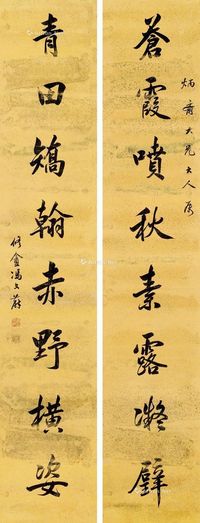 蒼霞噴秋素露凝壁
炳齋大兄大人屬
青田矯翰赤野橫姿
修盦馮文蔚